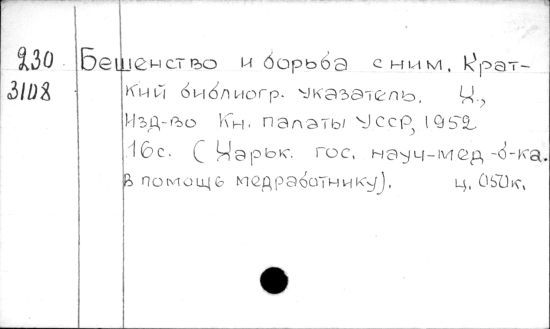 230 Бешенство и борьба с ним. Крат-
3108 кий библиогр. указатель. Х.,
Изд-во Кн. палаты УССР, 1952
16с. (Харьк. гос. науч-мед-б-ка.
В помощь медработнику). ц. 050к.